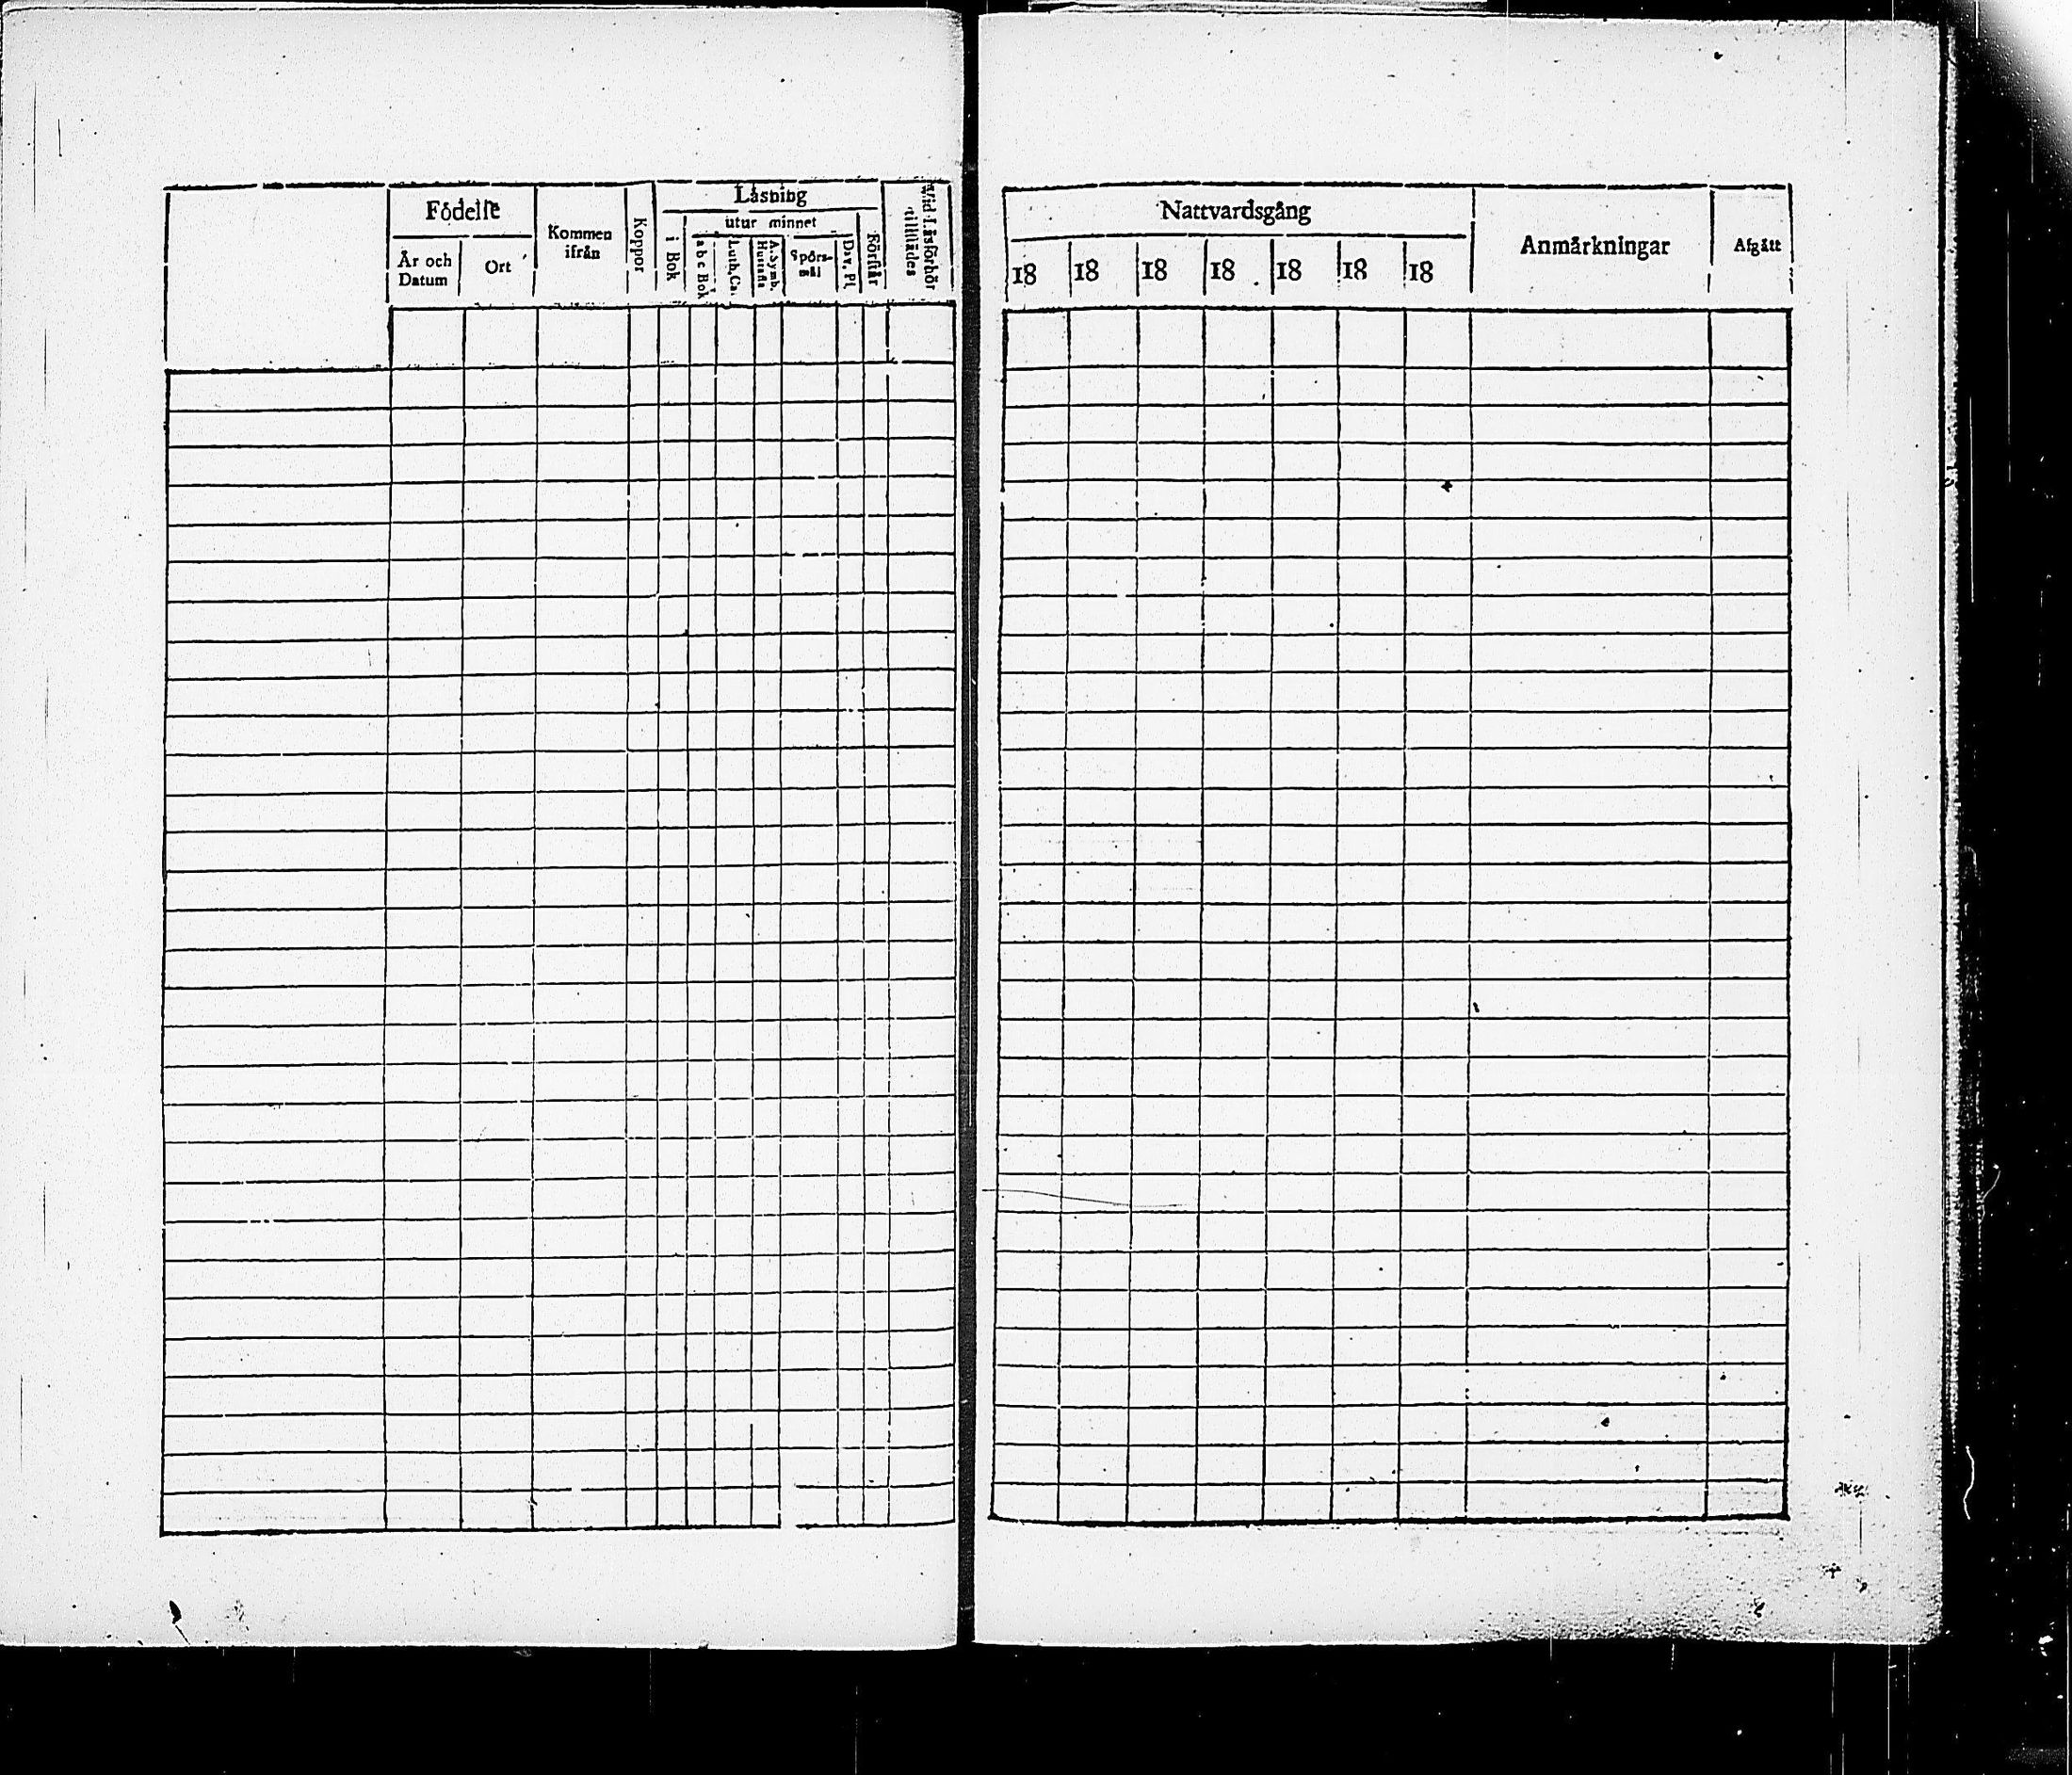 Födelse
År och
Datum
Ort
Kommen
ifrån
Koppor
Läsning
i Bok
utur minnet
abc Bok
Luth. Ca.
A. Symb.
Hustafla
Spörs-
mål
Dav. Pl.
Förstår
wid Läsförhör
tillstädes
Nattvardsgång
18 18 18 18 18 18 18
Anmärkningar
Afgått